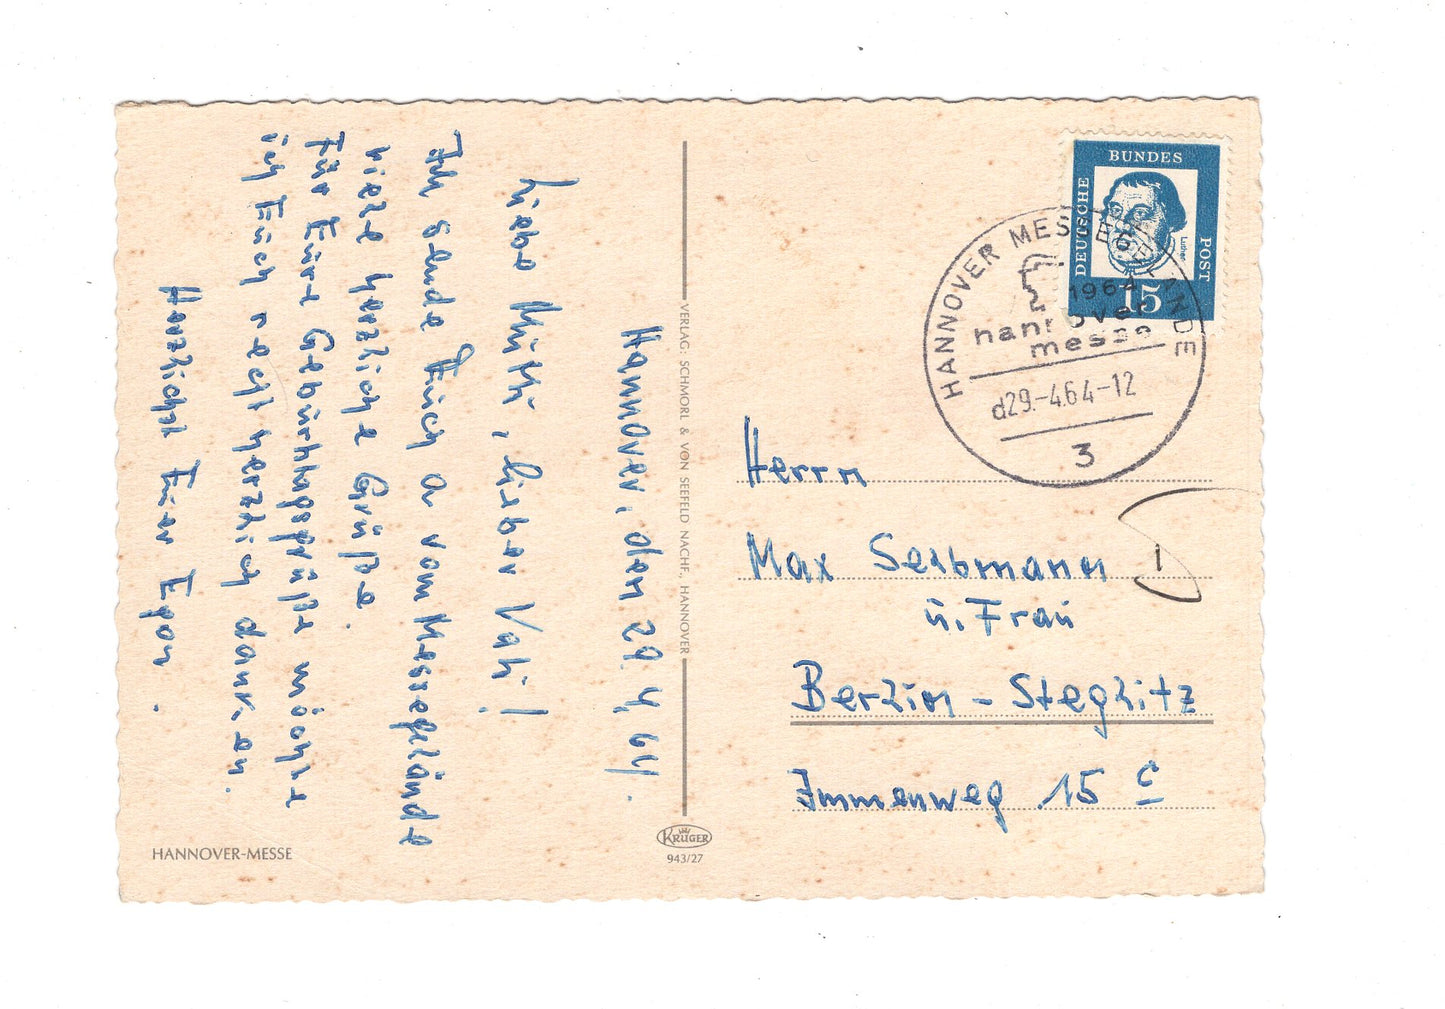 Hannover, den 29. 4. 64.
Liebe Mutti, lieber Vati!
Ich sende Euch a vom Messegelände
viele herzliche Grüße.
Für Eure Geburtstagsgrüße möchte
ich Euch recht herzlich danken.
Herzlichst Euer Egon.
HANNOVER-MESSE
VERLAG: SCHMORL & VON SEEFELD NACHF., HANNOVER
KRÜGER
943/27
DEUTSCHE
BUNDES
POST
Luther
15
HANNOVER MESSEGELÄNDE
1964
hannover
messe
d29.-4.64-12
3
Herrn
Max
u. Frau
Berlin - Steglitz
Immenweg 15 c